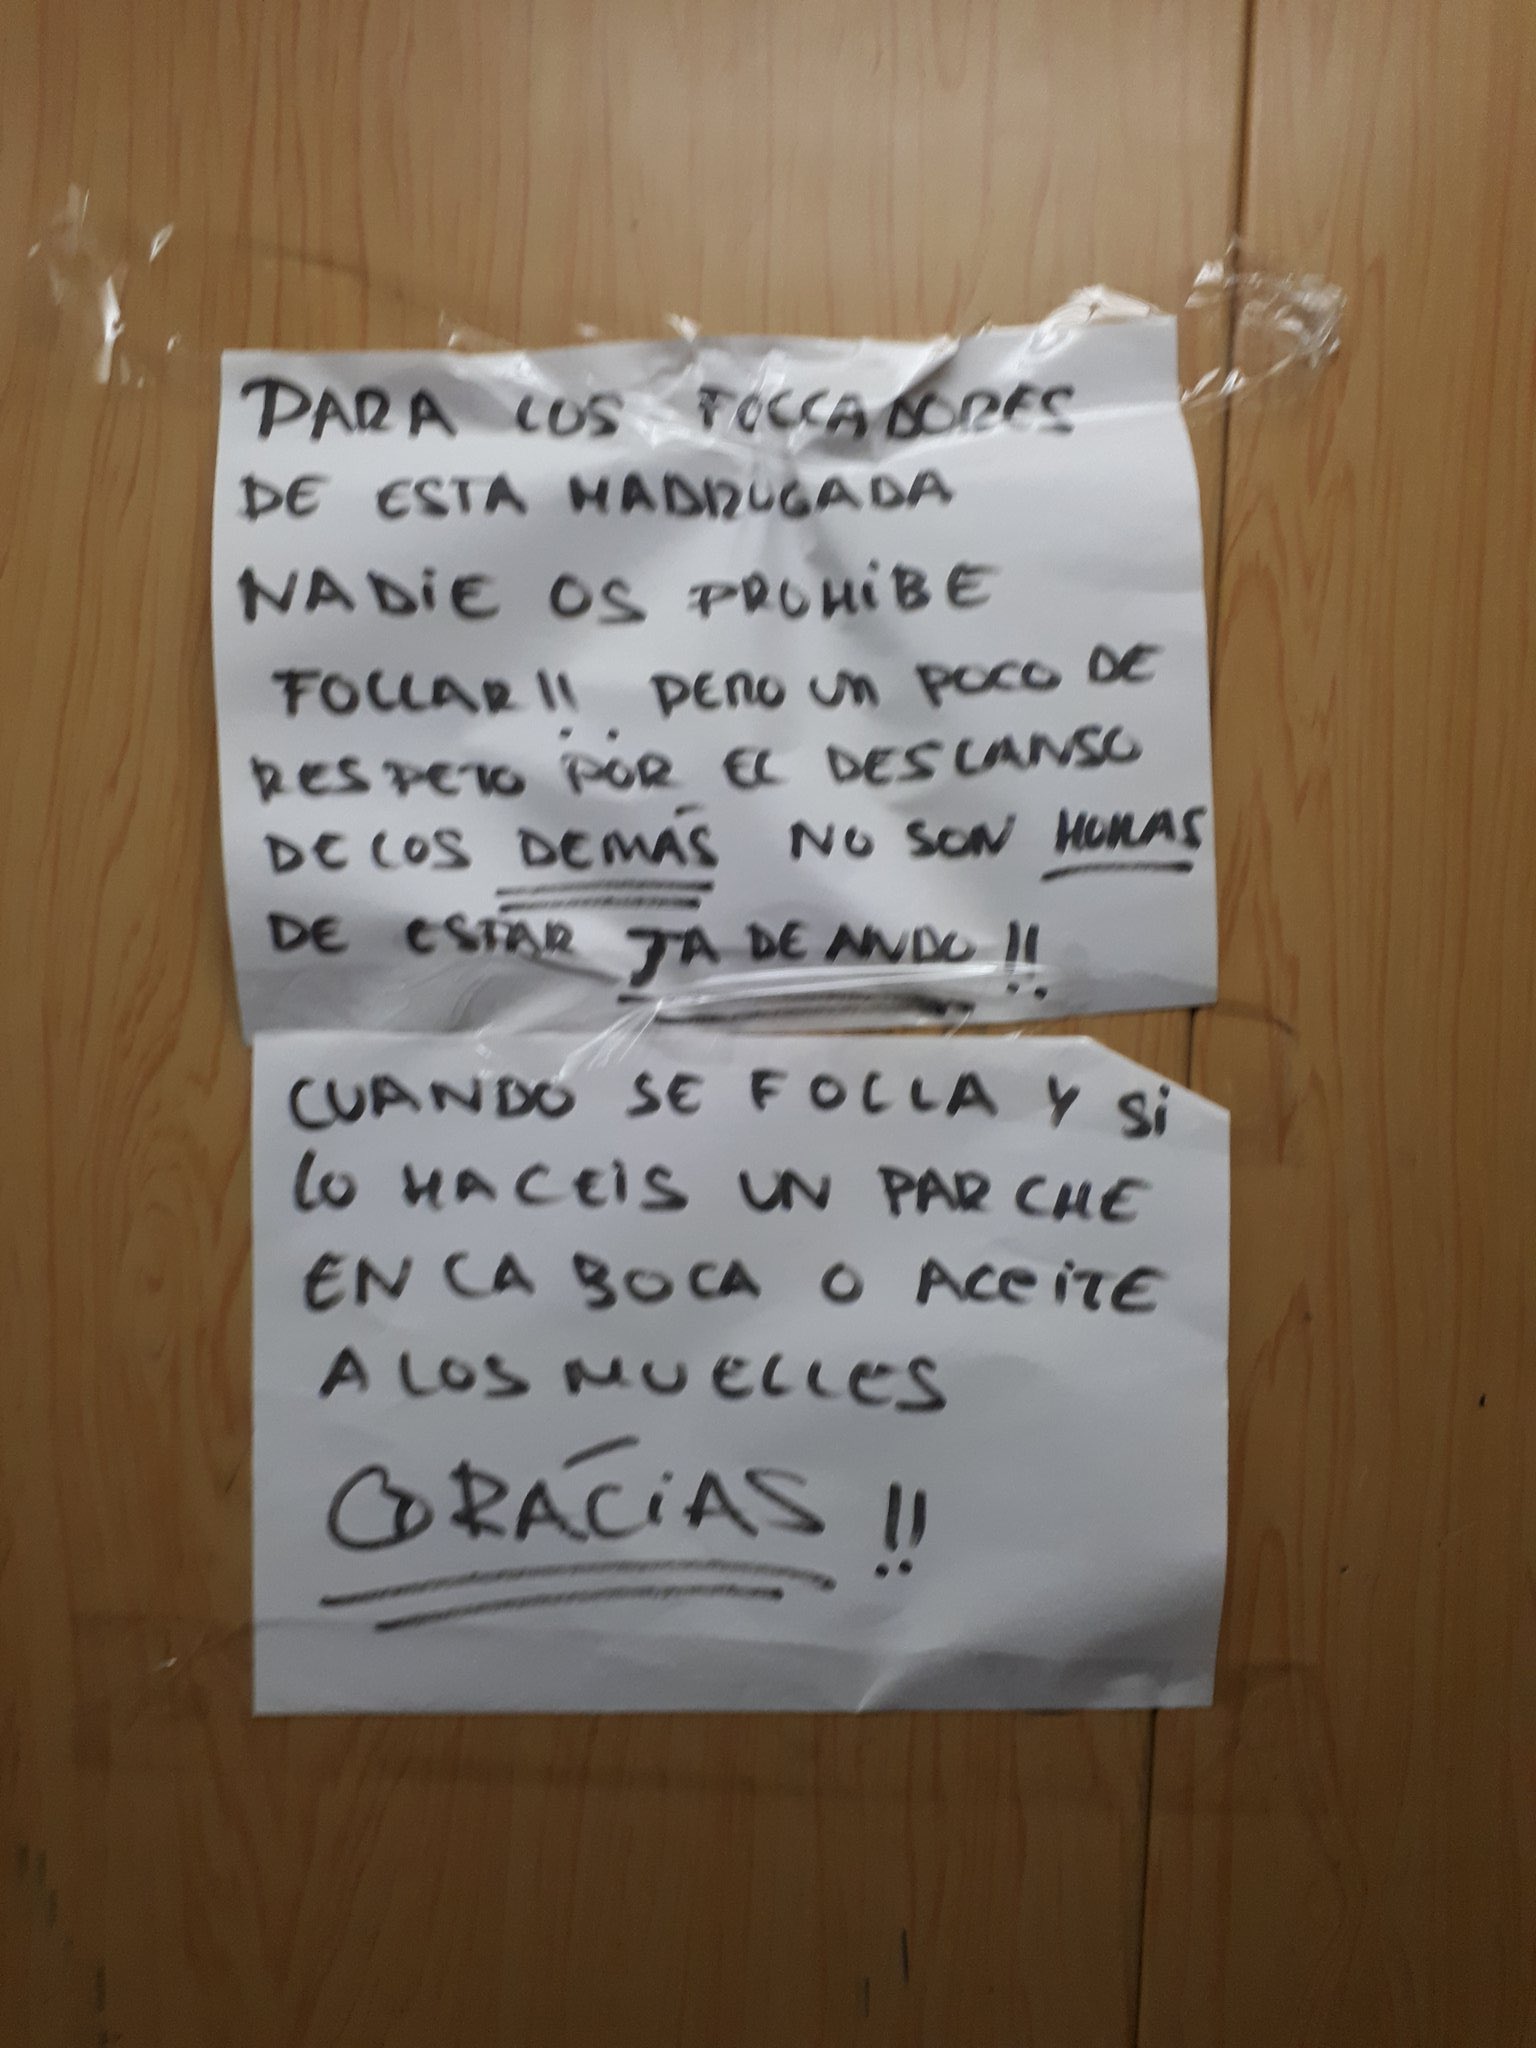 PARA LOS FOLLADORES
DE ESTA MADRUGADA
NADiE OS PROHiBE
FOLLAR!! PERO UN POCO DE
RESPETO POR EL DESCANSO
DE LOS DEMÁS NO SON HORAS
DE ESTAR JADEANDO!!
CUANDO SE FOLLA Y Si
LO HACEIS UN PARCHE
EN LA BOCA O ACEiTE
A LOS MUELLES
GRÁCiAS!!